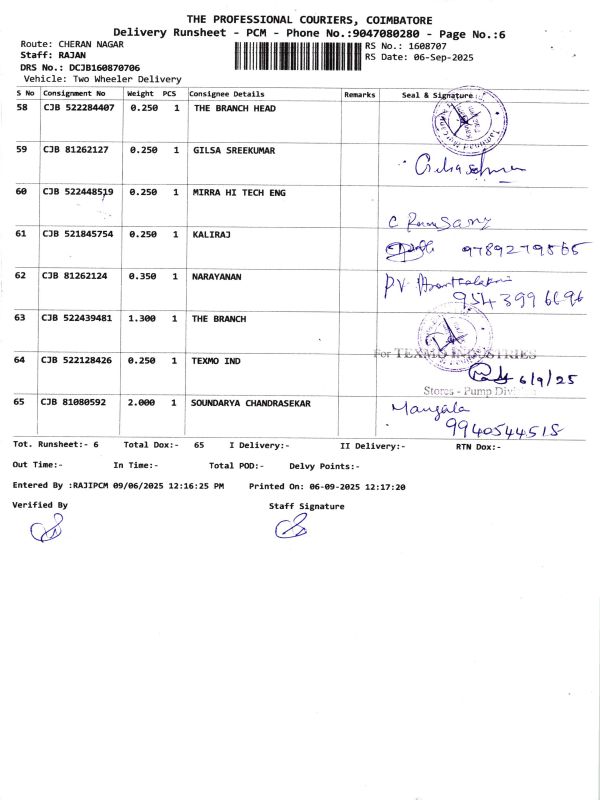 THE PROFESSIONAL COURIERS, COIMBATORE
Delivery Runsheet - PCM - Phone No.:9047080280 - Page No.:6
Route: CHERAN NAGAR RS No.: 1608707
Staff: RAJAN RS Date: 06-Sep-2025
DRS No.: DCJB160870706
Vehicle: Two Wheeler Delivery
S No Consignment No Weight PCS Consignee Details Remarks Seal & Signature
58 CJB 522284407 0.250 1 THE BRANCH HEAD
59 CJB 81262127 0.250 1 GILSA SREEKUMAR
60 CJB 522448519 0.250 1 MIRRA HI TECH ENG
61 CJB 521845754 0.250 1 KALIRAJ 9789279565
62 CJB 81262124 0.350 1 NARAYANAN PV
9543996696
63 CJB 522439481 1.300 1 THE BRANCH
For TEXMO INDUSTRIES
64 CJB 522128426 0.250 1 TEXMO IND 6/9/25
Stores - Pump Div
65 CJB 81080592 2.000 1 SOUNDARYA CHANDRASEKAR Mangala
9940544518
Tot. Runsheet:- 6 Total Dox:- 65 I Delivery:- II Delivery:- RTN Dox:-
Out Time:- In Time:- Total POD:- Delvy Points:-
Entered By :RAJIPCM 09/06/2025 12:16:25 PM Printed On: 06-09-2025 12:17:20
Verified By Staff Signature